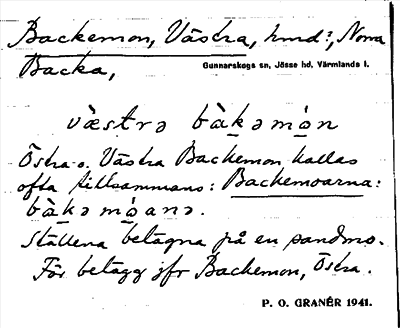 Backemon, Västra, hmd?, Norra
Backa,
Gunnarskogs sn, Jösse hd, Värmlands l.
væ̀strə bàkəmòn
Östra o. Västra Backemon kallas
ofta tillsammans: Backemoarna:
bàkəmòanə.
Ställena belägna på en sandmo.
För belägg jfr Backemon, Östra.
P. O. GRANÉR 1941.